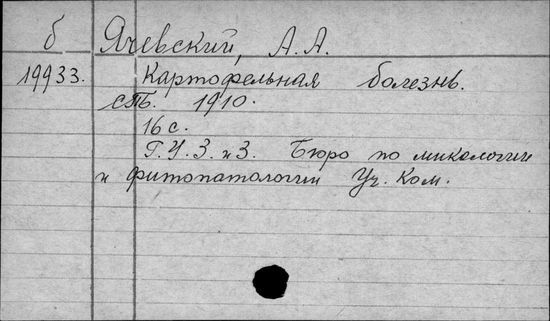 б Ячевский, А. А.
19933. Картофельная болезнь.
СПБ. 1910.
16 с.
Г. У. З. и З. Бюро по микологии
и фитопатологии Уч. Ком.